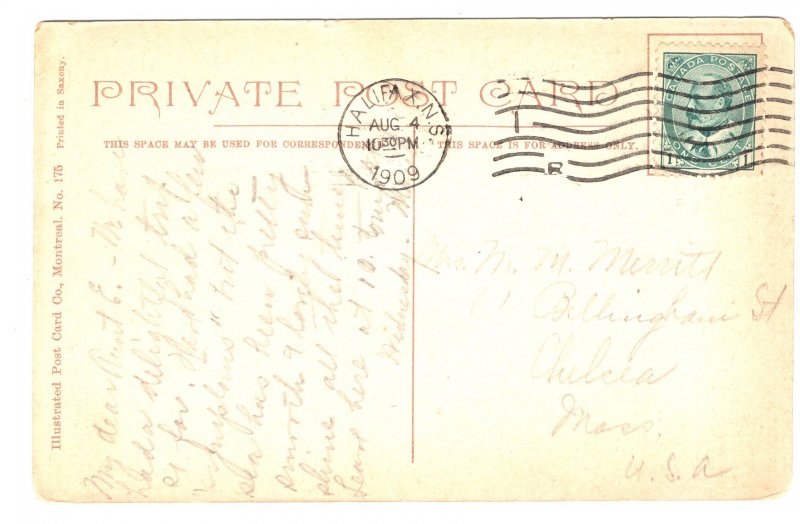 PRIVATE POST CARD
THIS SPACE MAY BE USED FOR CORRESPONDENCE
THIS SPACE IS FOR ADDRESS ONLY.
HALIFAX, N.S.
AUG 4
10 30 PM
1909
R
CANADA POSTAGE
1 1
Mrs. M. M. Merritt
Bellingham St
Chelsea
Mass.
U.S.A
My dear Aunt E. - We have
had a delightful trip
so far. Have had a few
"symptoms" but the
sea has been pretty
smooth & lovely sun-
shine all the time
Leave here at 10.
Wednesday.
Illustrated Post Card Co., Montreal. No. 175 Printed in Saxony.